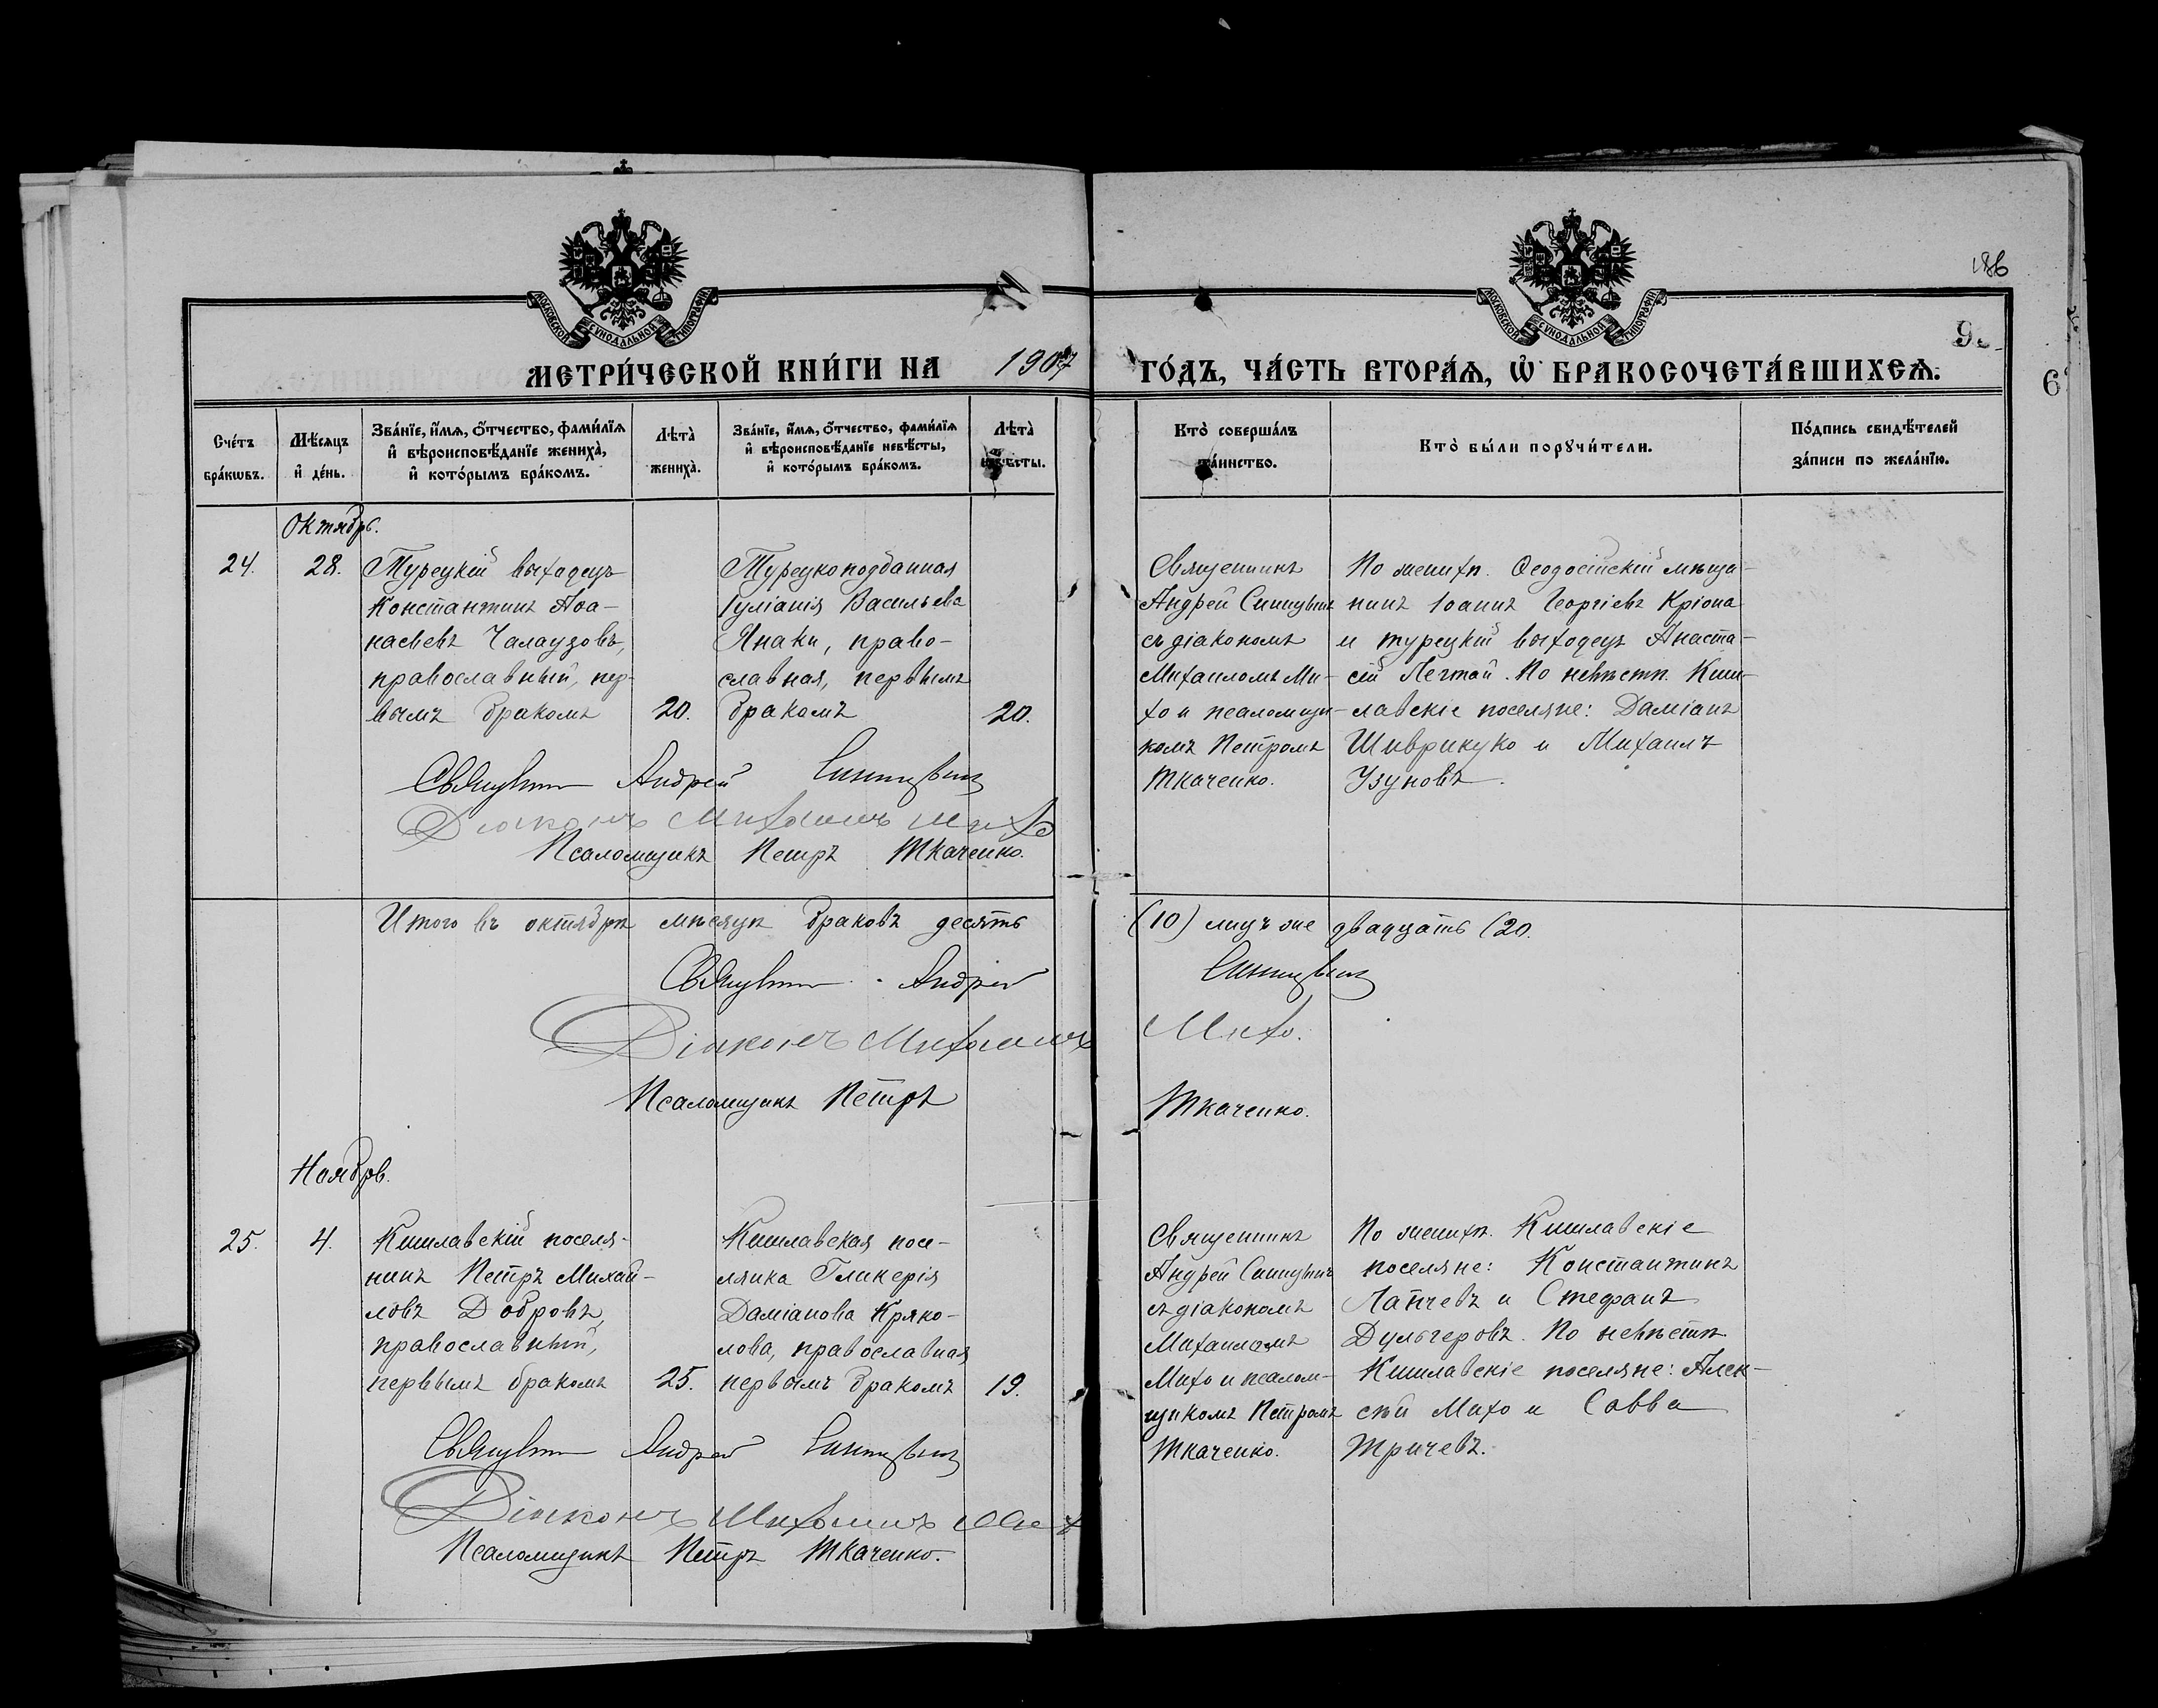 186
МОСКОВСКОЙ СѴНОДАЛЬНОЙ ТИПОГРАФІИ
МОСКОВСКОЙ СѴНОДАЛЬНОЙ ТИПОГРАФІИ
МЕТРИ́ЧЕСКОЙ КНИ́ГИ НА 1907 ГО́ДЪ, ЧА́СТЬ ВТОРА́Ѧ, Ѡ БРАКОСОЧЕТА́ВШИХСѦ.
Сче́тъ бра́кѡвъ.
Мѣ́сяцъ и҆ де́нь.
Зва́нїе, и҆́мѧ, ѻ҆́тчество, фами́лїѧ
и҆ вѣроисповѣ́данїе женихà,
и҆ кото́рымъ бра́комъ.
Лѣтà женихà.
Зва́нїе, и҆́мѧ, ѻ҆́тчество, фами́лїѧ
и҆ вѣроисповѣ́данїе невѣ́сты,
и҆ кото́рымъ бра́комъ.
Лѣтà невѣ́сты.
Кто̀ соверша́лъ та́инство.
Кто̀ бы́ли порꙋчи́тели.
По́дпись свидѣ́телей
за́писи по жела́нїю.
Октябрь.
24.
28.
Турецкій выходецъ
Константинъ Аѳа-
насьевъ Чалаузовъ,
православный, пер-
вымъ бракомъ
20.
Турецкоподданная
Іуліанія Васильева
Янаки, право-
славная, первымъ
бракомъ
20.
Священникъ
Андрей Синицынъ
съ діакономъ
Михаиломъ Ми-
хо и псаломщи-
комъ Петромъ
Ткаченко.
По женихѣ. Ѳеодосійскій мѣща-
нинъ Іоаннъ Георгіевъ Кріона
и турецкій выходецъ Анаста-
сій Лечтой. По невѣстѣ. Киш-
лавскіе поселяне: Даміанъ
Шиврикуко и Михаилъ
Узуновъ.
Священникъ Андрей Синицынъ
Діаконъ Михаилъ Михо
Псаломщикъ Петръ Ткаченко.
Итого въ октябрѣ мѣсяцѣ браковъ десять (10) лицъ же двадцать (20.
Священникъ Андрей Синицынъ
Діаконъ Михаилъ Михо.
Псаломщикъ Петръ Ткаченко.
Ноябрь.
25.
4.
Кишлавскій поселя-
нинъ Петръ Михай-
ловъ Добровъ,
православный,
первымъ бракомъ
25.
Кишлавская посе-
лянка Гликерія
Даміанова Кряко-
лова, православная
первымъ бракомъ
19.
Священникъ
Андрей Синицынъ
съ діакономъ
Михаиломъ
Михо и псалом-
щикомъ Петромъ
Ткаченко.
По женихѣ. Кишлавскіе
поселяне: Константинъ
Лапчевъ и Стефанъ
Дульгеровъ. По невѣстѣ
Кишлавскіе поселяне: Алек-
сѣй Михо и Савва
Тричевъ.
Священникъ Андрей Синицынъ
Діаконъ Михаилъ Михо
Псаломщикъ Петръ Ткаченко.